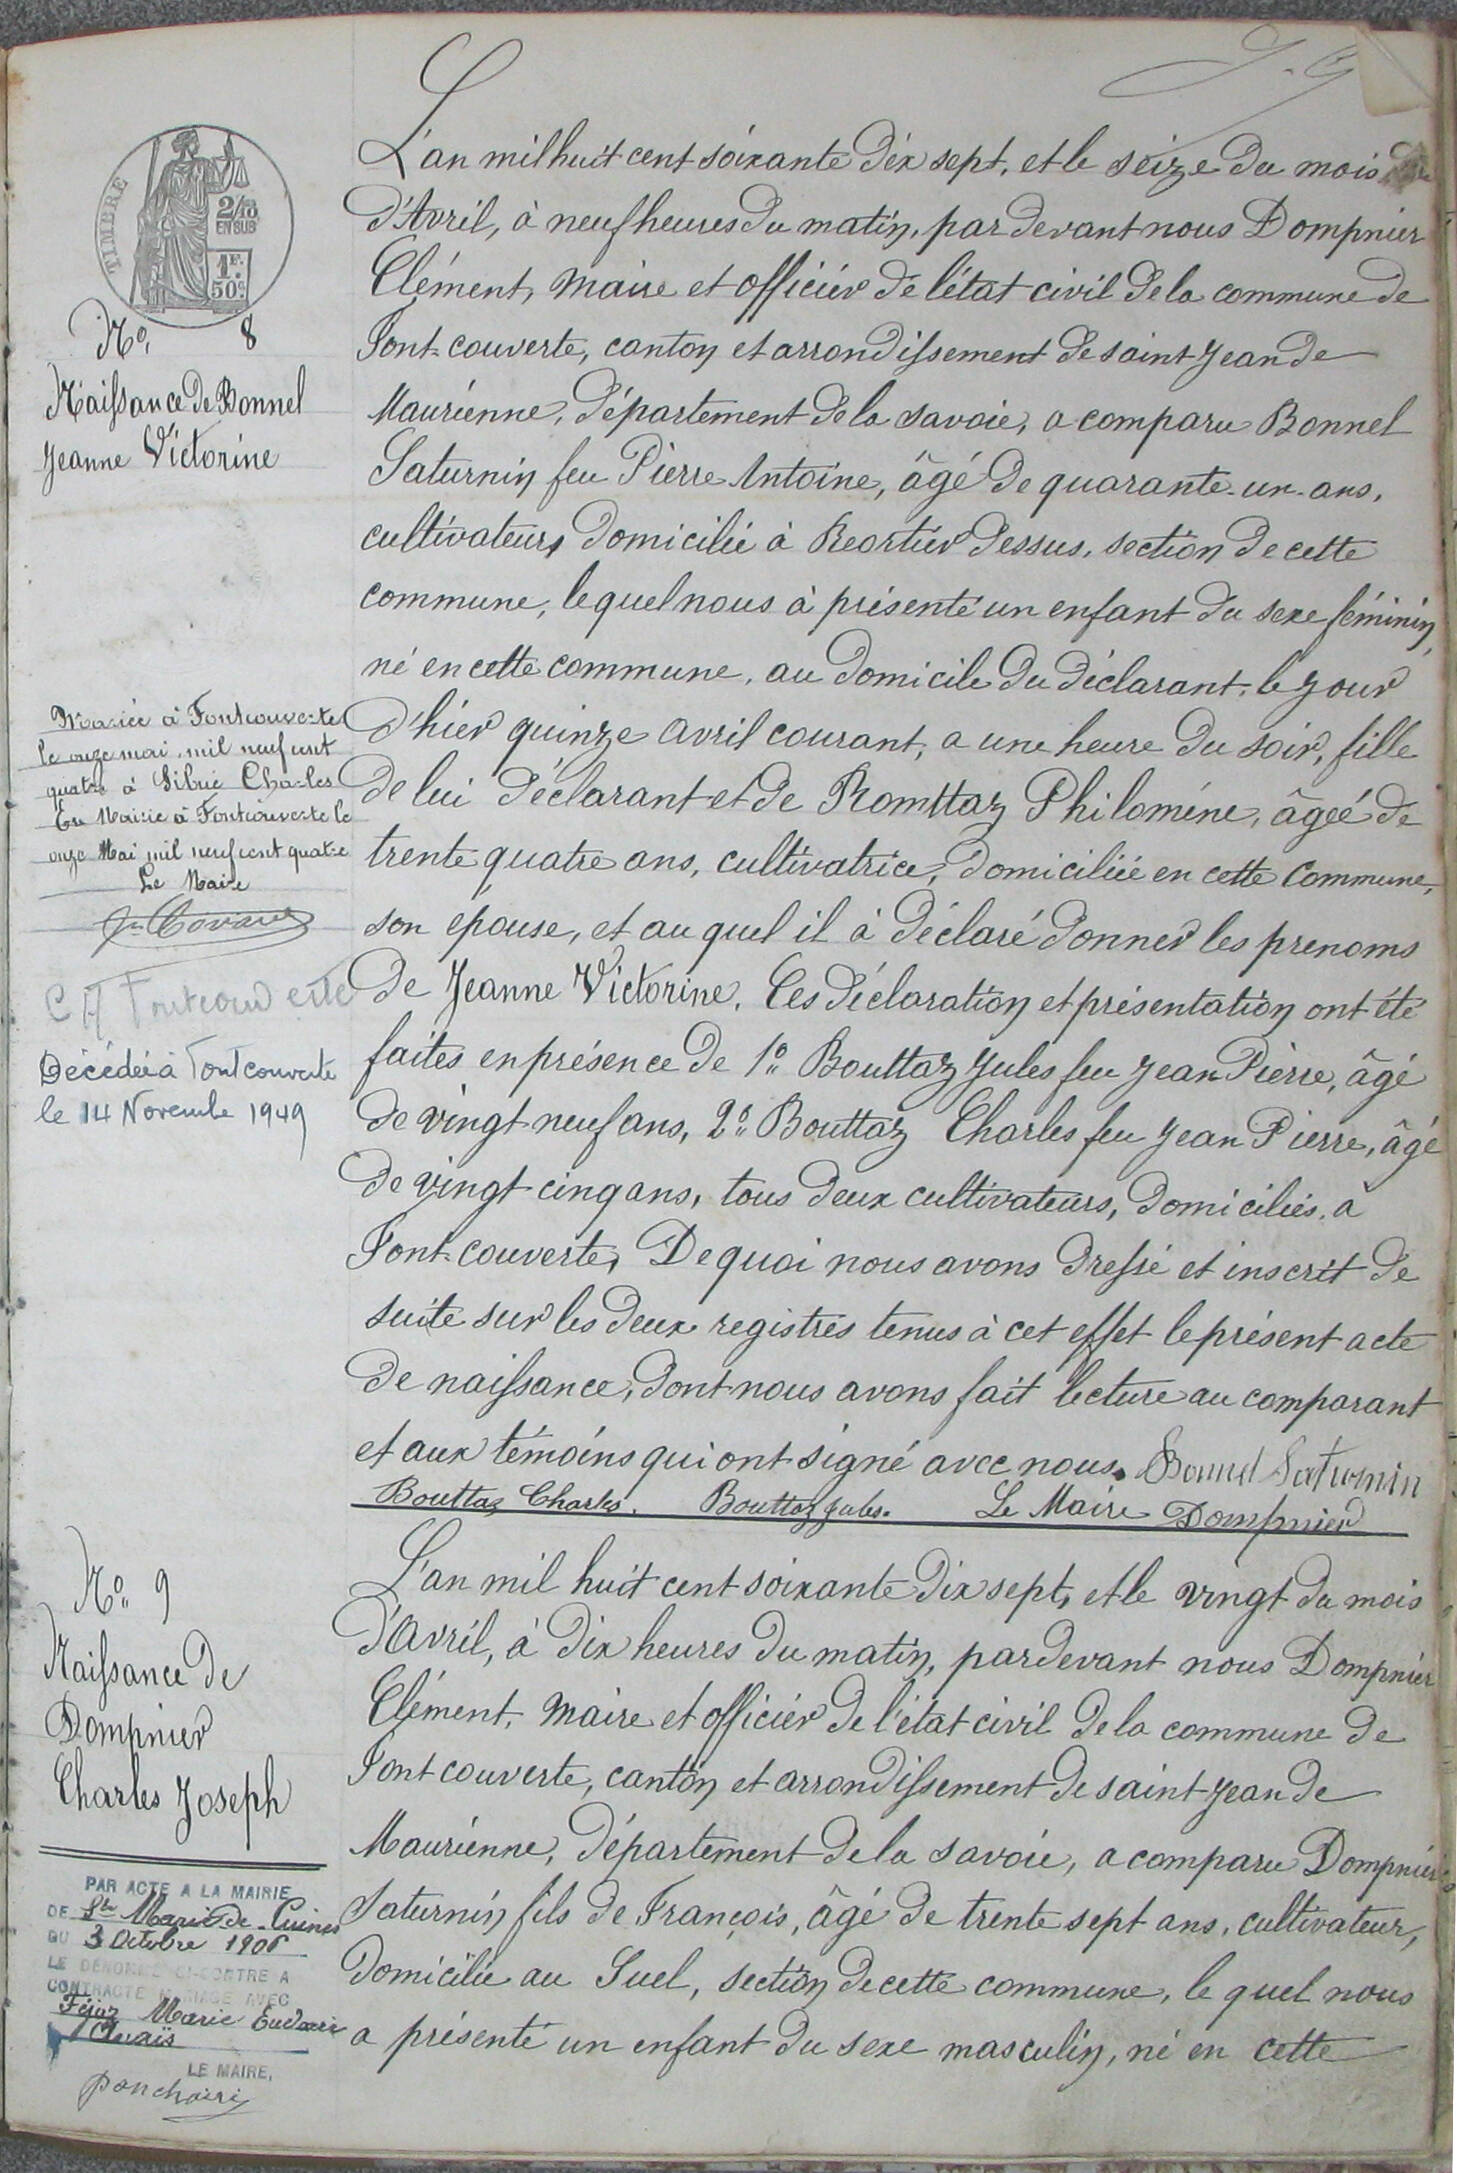 TIMBRE
2/10
EN SUS
1F.
50c.
No. 8
Naissance de Bonnel
Jeanne Victorine
L'an mil huit cent soixante dix sept, et le seize du mois
d'Avril, à neuf heures du matin, par devant nous Dompnier
Clément, maire et officier de l'état civil de la commune de
Font-couverte, canton et arrondissement de saint Jean de
Maurienne, département de la savoie, a comparu Bonnel
Saturnin feu Pierre Antoine, âgé de quarante-un-ans,
cultivateur, domicilié à Reortier dessus, section de cette
commune, lequel nous à présenté un enfant du sexe féminin,
né en cette commune, au domicile du déclarant, le jour
d'hier quinze avril courant, a une heure du soir, fille
de lui déclarant et de Romttaz Philoméne, âgée de
trente quatre ans, cultivatrice, domiciliée en cette commune,
son épouse, et au quel il à déclaré donner les prenoms
de Jeanne Victorine. Ces déclaration et présentation ont été
faites en présence de 1o Bouttaz Jules feu Jean Pierre, âgé
de vingt neuf ans, 2o Bouttaz Charles feu Jean Pierre, âgé
de vingt cinq ans, tous deux cultivateurs, domiciliés à
Font-couverte, De quoi nous avons dressé et inscrit de
suite sur les deux registres tenus à cet effet le présent acte
de naissance, dont nous avons fait lecture au comparant
et aux témoins qui ont signé avec nous. Bonnel Saturnin
Bouttaz Charles. Bouttaz Jules. Le Maire Dompnier
Mariée à Fontcouverte
le onze mai mil neuf cent
quatre à Charles
En Mairie à Fontcouverte le
onze Mai mil neuf cent quatre
Le Maire
Fontcouverte
Décédée à Fontcouverte
le 14 Novembre 1949
No 9
Naissance de
Dompnier
Charles Joseph
L'an mil huit cent soixante dix sept, et le vingt du mois
d'Avril, à dix heures du matin, pardevant nous Dompnier
Clément, maire et officier de l'état civil de la commune de
Font couverte, canton et arrondissement de saint Jean de
Maurienne, département de la savoie, a comparu Dompnier
Saturnin fils de François, âgé de trente sept ans, cultivateur,
domicilié au Suel, section de cette commune, le quel nous
a présenté un enfant du sexe masculin, né en cette
PAR ACTE A LA MAIRIE
DE Ste Marie de Cuines
DU 3 Octobre 1906
LE DÉNOMMÉ CI-CONTRE A
CONTRACTÉ MARIAGE AVEC
Marie
LE MAIRE,